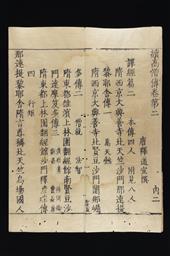 續高僧傳卷第二　内二
唐釋道宣撰
譯經篇二　本傳四人　附見八人
隋西京大興善寺北天竺沙門那連
耶舍傳一　萬天懿
隋西京大興善寺北賢豆沙門闍那崛
多傳二　僧就　法智
隋東都雒濱上林園翻經館南賢豆沙
門達摩笈多傳三
隋東都上林園翻經館沙門釋彥琮傳
四　行矩
那連提黎耶舍隋言尊稱北天竺烏場國人